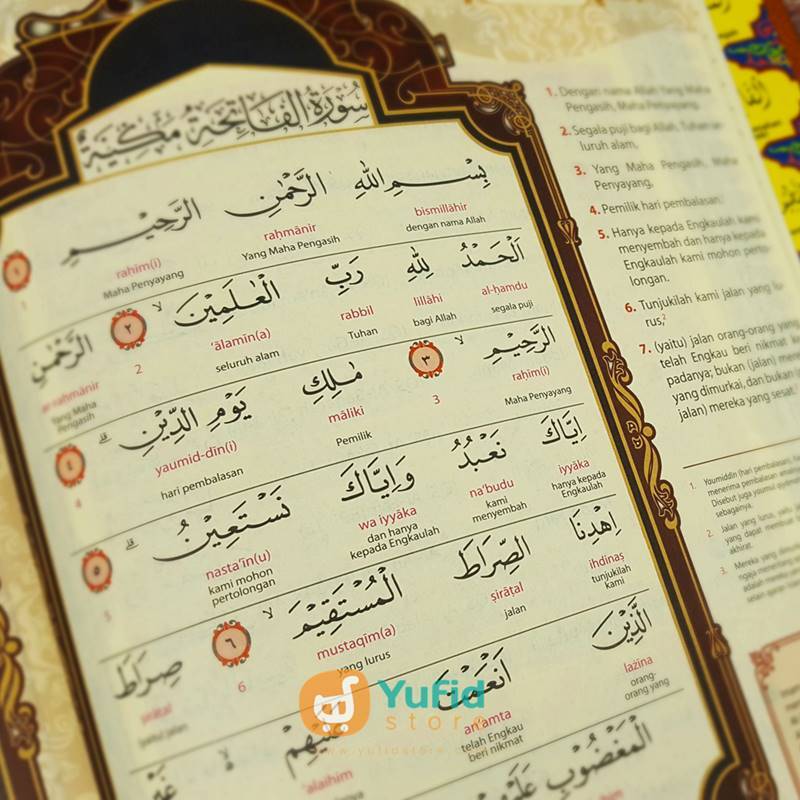 سُورَةُ الفَاتِحَةِ مَكِّيَّةٌ
بِسْمِ اللهِ الرَّحْمٰنِ الرَّحِيْمِ ١
bismillāhir raḥmānir raḥīm(i) 1
dengan nama Allah Yang Maha Pengasih Maha Penyayang
اَلْحَمْدُ لِلّٰهِ رَبِّ الْعٰلَمِيْنَ ۙ ٢ الرَّحْمٰنِ
al-ḥamdu lillāhi rabbil ‘ālamīn(a) 2 ar-raḥmānir
segala puji bagi Allah Tuhan seluruh alam Yang Maha Pengasih
الرَّحِيْمِ ۙ ٣ مٰلِكِ يَوْمِ الدِّيْنِ ۗ ٤
raḥīm(i) 3 māliki yaumid-dīn(i) 4
Maha Penyayang Pemilik hari pembalasan
اِيَّاكَ نَعْبُدُ وَاِيَّاكَ نَسْتَعِيْنُ ۗ ٥
iyyāka na‘budu wa iyyāka nasta‘īn(u) 5
hanya kepada Engkaulah kami menyembah dan hanya kepada Engkaulah kami mohon pertolongan
اِهْدِنَا الصِّرَاطَ الْمُسْتَقِيْمَ ۙ ٦ صِرَاطَ
ihdinaṣ ṣirāṭal mustaqīm(a) 6 ṣirāṭal
tunjukilah kami jalan yang lurus jalan
الَّذِيْنَ اَنْعَمْتَ
lażīna an‘amta ‘alaihim
orang-orang yang telah Engkau beri nikmat
الْمَغْضُوْبِ
1. Dengan nama Allah Yang Maha
Pengasih, Maha Penyayang.
2. Segala puji bagi Allah, Tuhan
luruh alam,
3. Yang Maha Pengasih, Maha
Penyayang,
4. Pemilik hari pembalasan.
5. Hanya kepada Engkaulah kami
menyembah dan hanya kepada
Engkaulah kami mohon perto-
longan.
6. Tunjukilah kami jalan yang lu-
rus,²
7. (yaitu) jalan orang-orang yang
telah Engkau beri nikmat
padanya; bukan (jalan)
yang dimurkai, dan bukan
jalan) mereka yang sesat.
1. Youmiddin (hari pembalasan),
menerima pembalasan
Disebut juga
sebagainya.
2. Jalan yang lurus,
yang dapat
akhirat.
3. Mereka yang
Yufid
store
www.yufidstore